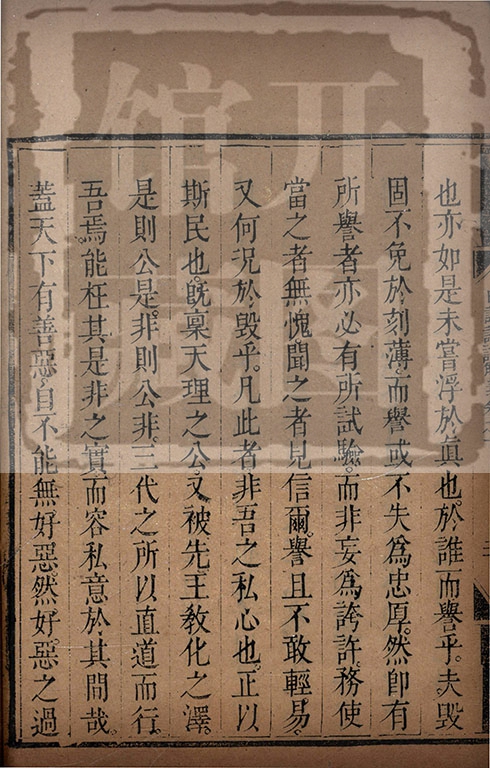 也亦如是未嘗浮於眞也於誰而譽乎。夫毀
固不免於刻薄。而譽或不失爲忠厚。然卽有
所譽者亦必有所試驗。而非妄爲誇許。務使
當之者無愧聞之者見信爾。譽且不敢輕易。
又何況於毀乎。凡此者非吾之私心也。正以
斯民也。旣稟天理之公。又被先王敎化之澤。
是則公是。非則公非。三代之所以直道而行。
吾焉能枉其是非之實。而容私意於其間哉。
蓋天下有善惡。自不能無好惡。然好惡之過